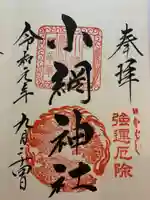 奉拝
強運厄除
小網神社
令和元年九月二四日